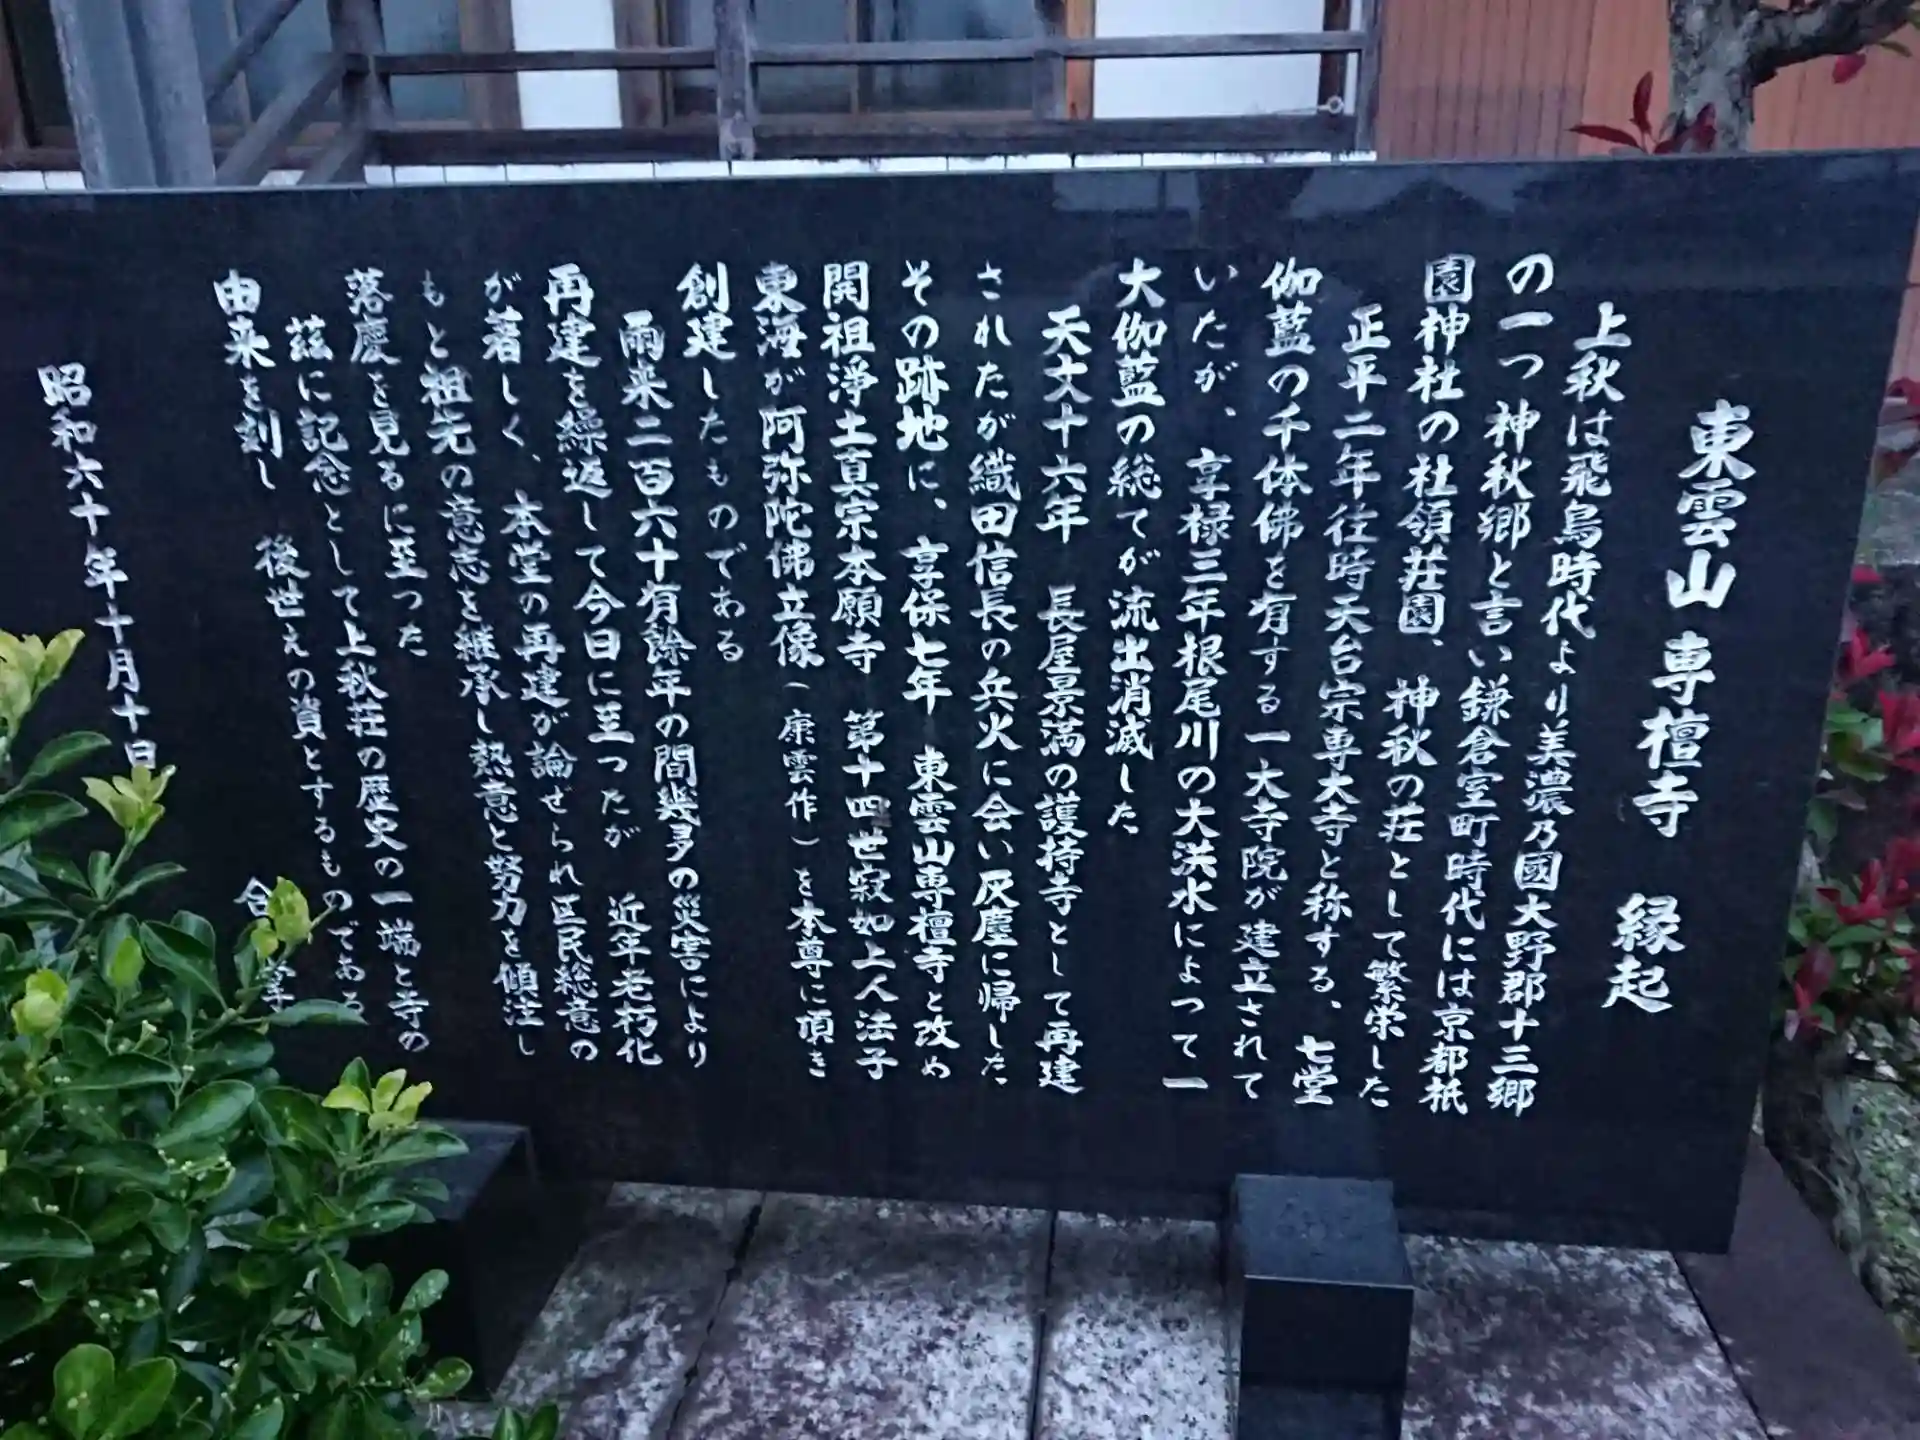 東雲山 専檀寺 縁起
上秋は飛鳥時代より美濃乃國大野郡十三郷
の一つ神秋郷と言い鎌倉室町時代には京都祇
園神社の社領荘園、神秋の荘として繁栄した
正平二年往時天台宗専大寺と称する、七堂
伽藍の千体佛を有する一大寺院が建立されて
いたが、享禄三年根尾川の大洪水によって一
大伽藍の総てが流出消滅した
天文十六年 長屋景満の護持寺として再建
されたが織田信長の兵火に会い灰塵に帰した
その跡地に、享保七年 東雲山専檀寺と改め
開祖淨土真宗本願寺 第十四世寂如上人法子
東海が阿弥陀佛立像(康雲作)を本尊に頂き
創建したものである
爾来二百六十有餘年の間幾多の災害により
再建を繰返して今日に至つたが 近年老朽化
が著しく、本堂の再建が論ぜられ区民総意の
もと祖先の意志を継承し熱意と努力を傾注し
落慶を見るに至つた
茲に記念として上秋荘の歴史の一端と寺の
由来を刻し 後世えの資とするものである
昭和六十年十月十日